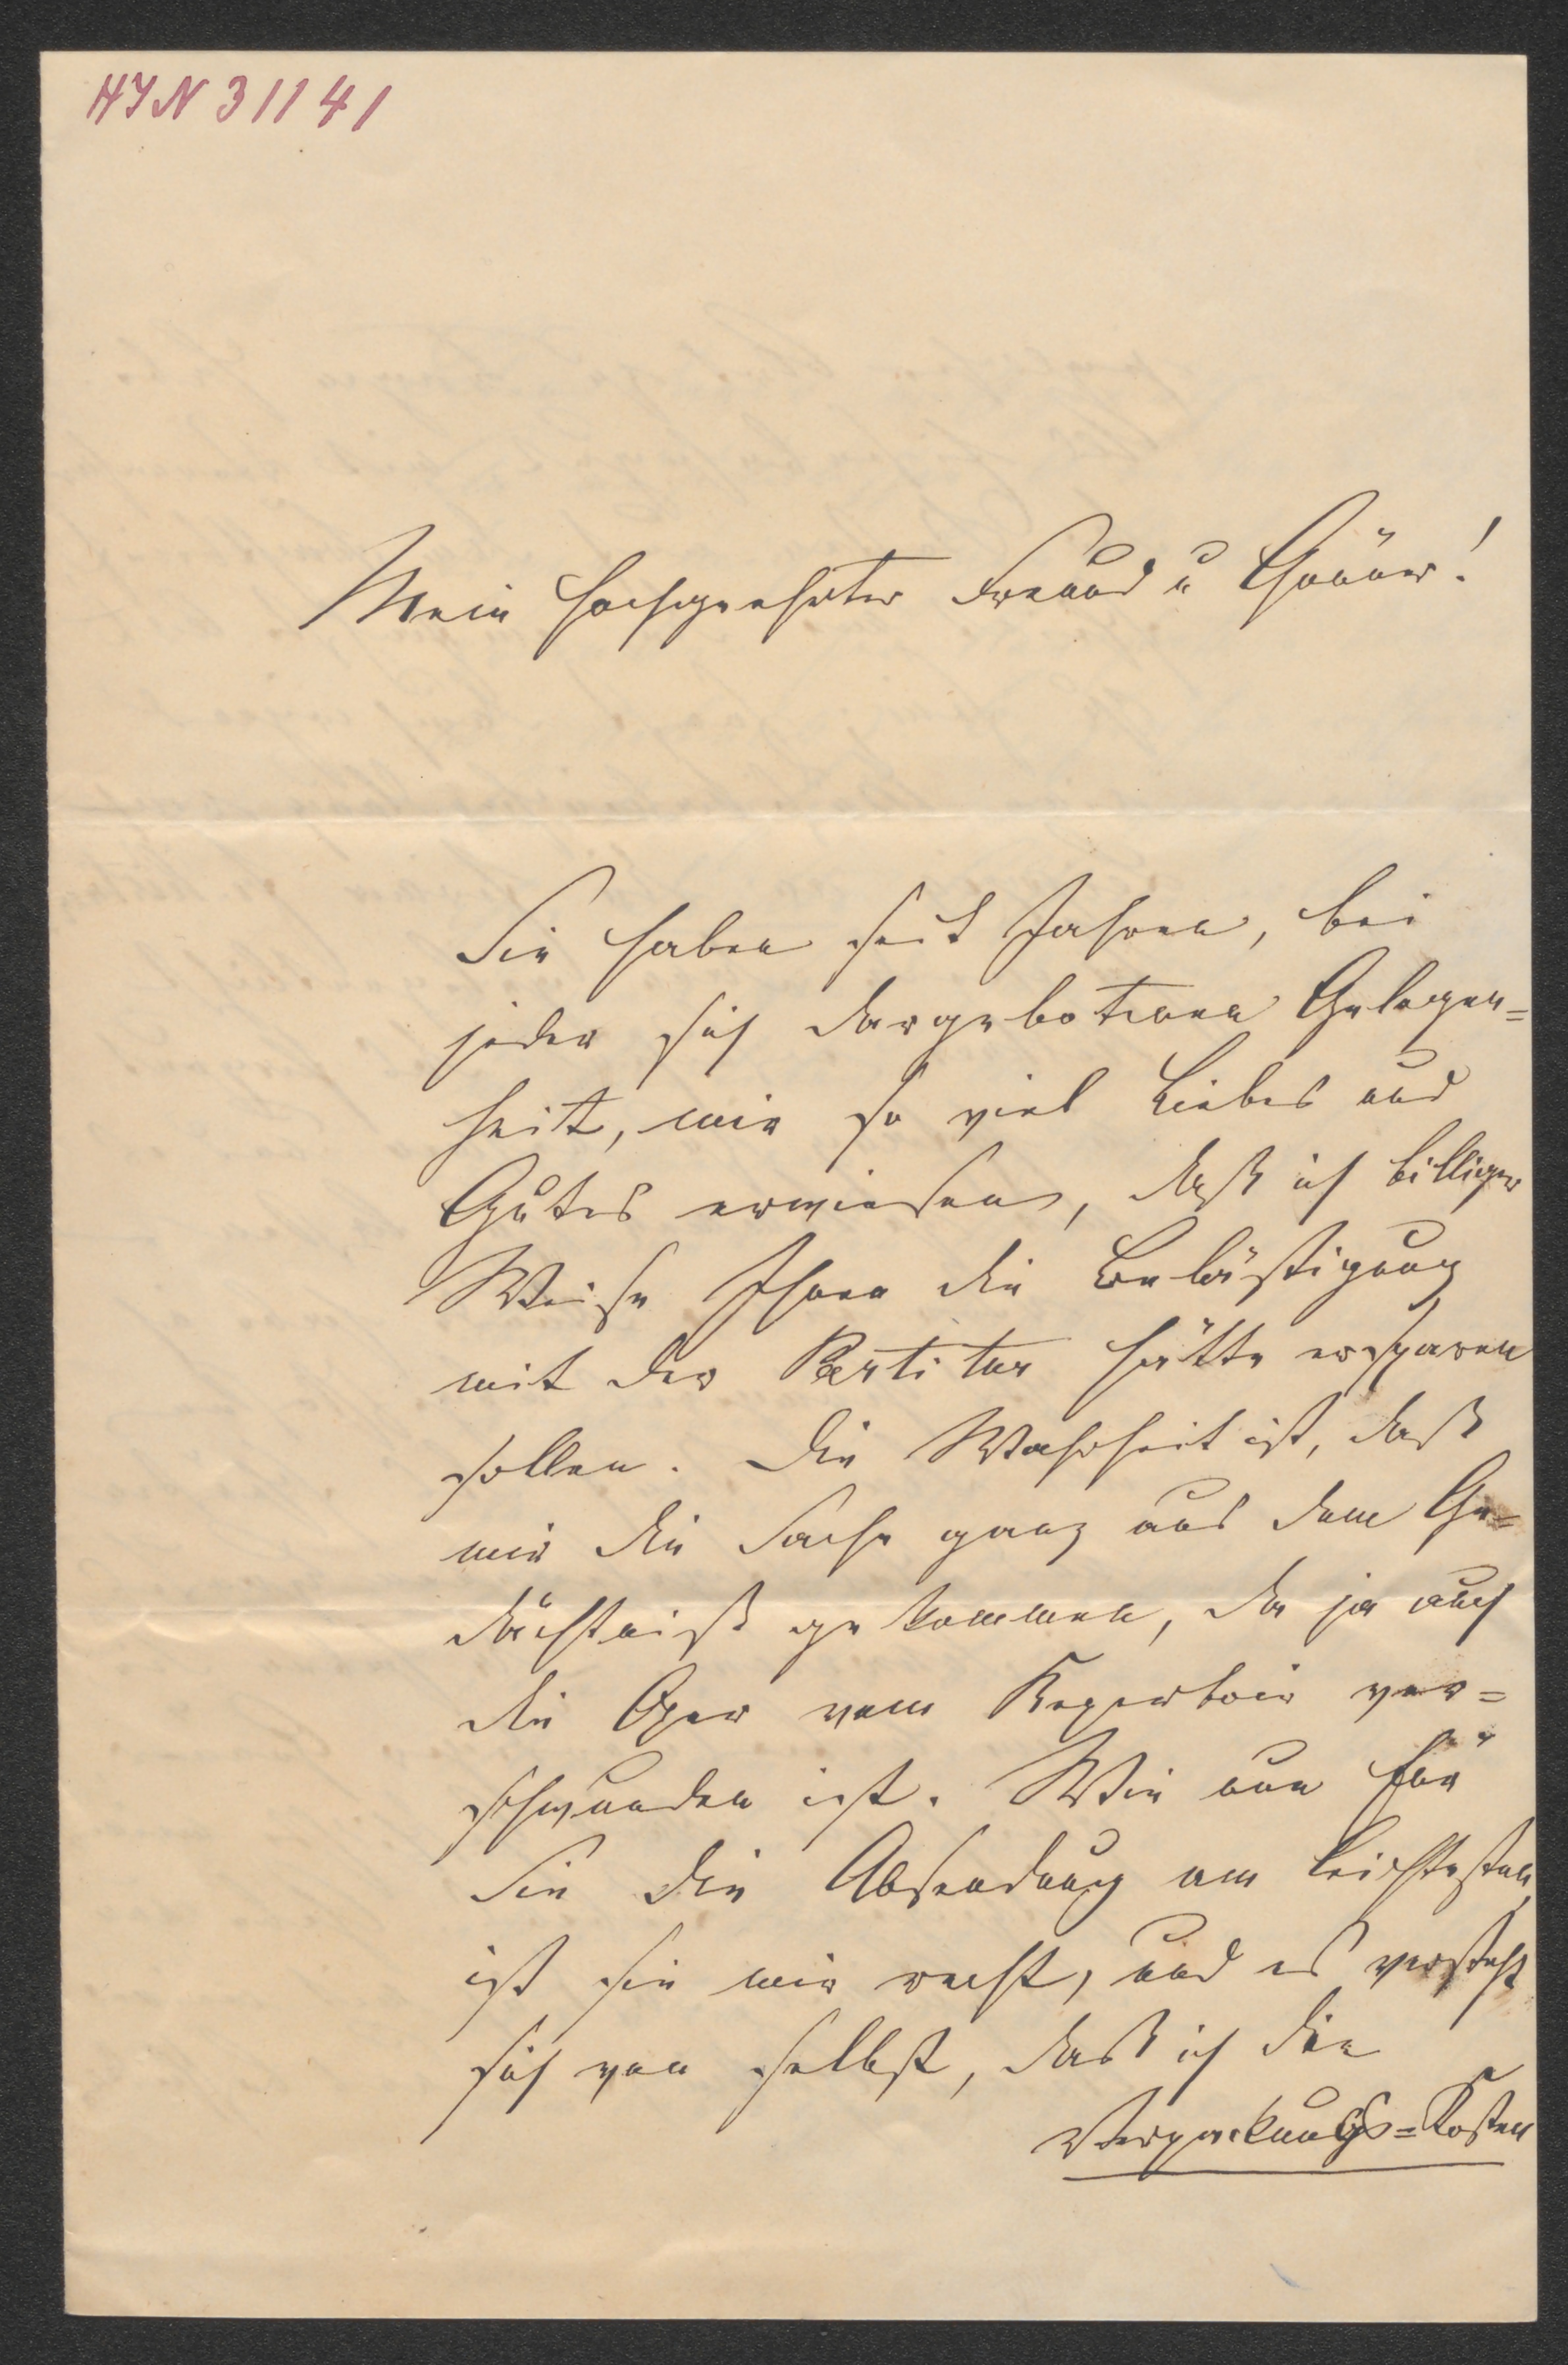 HJN 31141
Mein hochgeehrter Freund u Gönner!
Sie haben seit Jahren, bei
jeder sich dargebotenen Gelegen=
heit, mir so viel Liebes und
Gutes erwiesen, daß ich billiger
Weise Ihnen die Belästigung
mit der Partitur hätte ersparen
sollen. Die Wahrheit ist, daß
mir die Sache ganz aus dem Ge=
dächtniß gekommen, da ja auch
die Oper vom Repertoir ver=
schwunden ist. Wie nun für
Sie die Absendung am leichtesten,
ist sie mir recht, und es versteht
sich von selbst, daß ich die
Verpackungs=Kosten